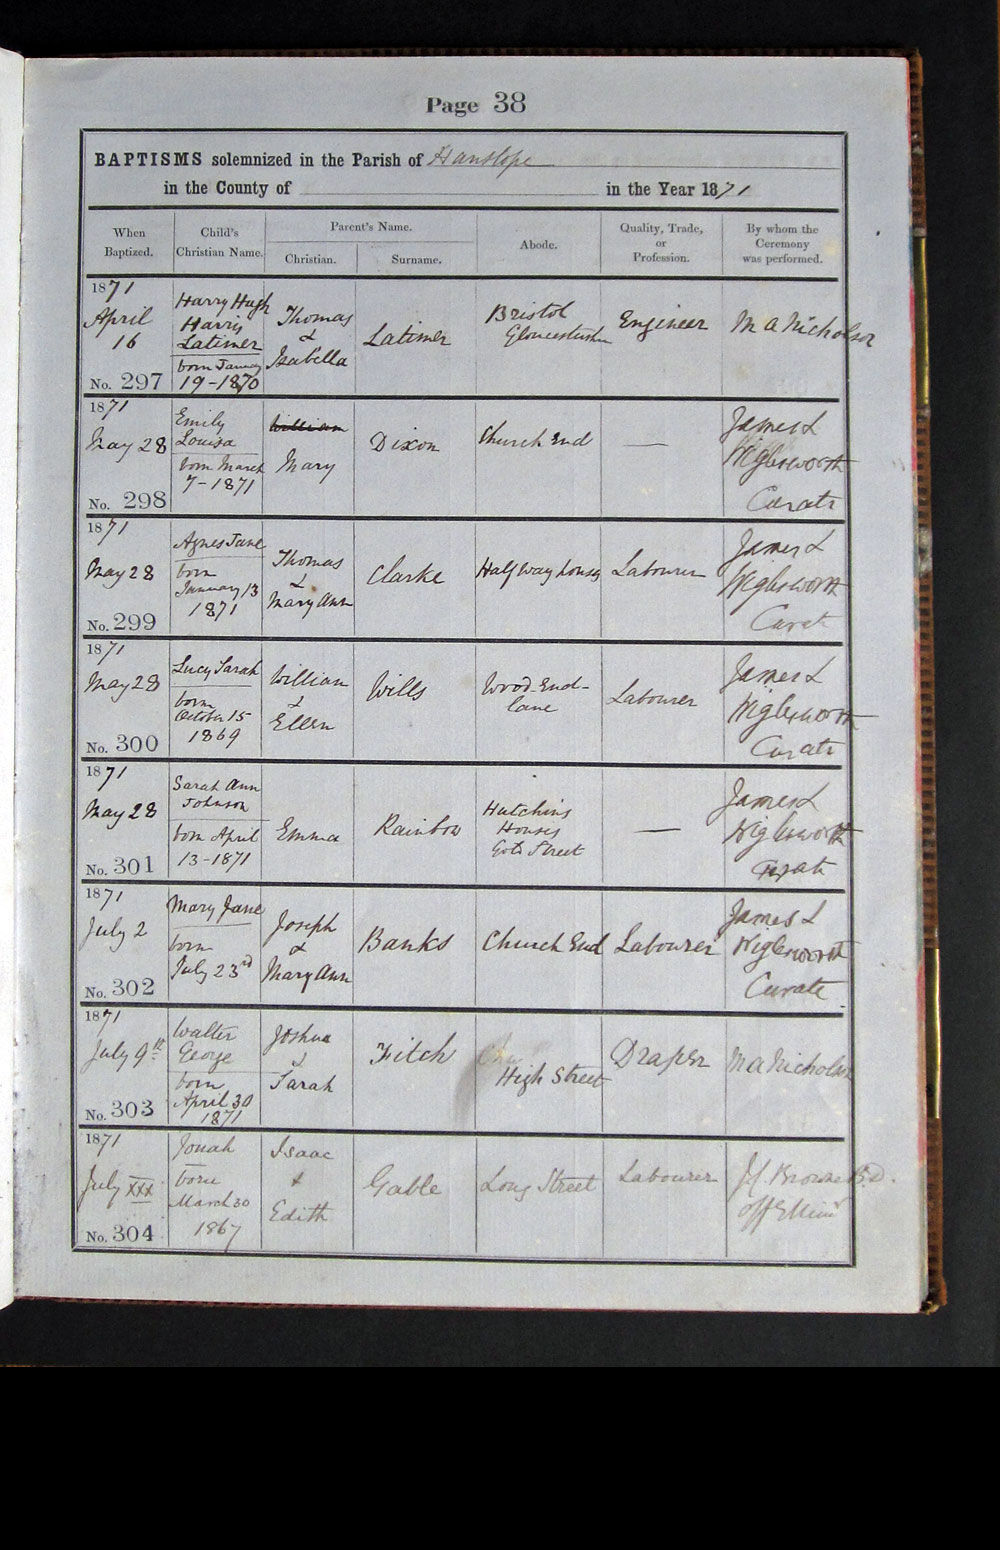 Page 38
BAPTISMS solemnized in the Parish of Hanslope
in the County of in the Year 1871
When Baptized.
Child's Christian Name.
Parent's Name.
Christian.
Surname.
Abode.
Quality, Trade, or Profession.
By whom the Ceremony was performed.
1871
April
16
No. 297
Harry Hugh
Harris
Latimer
born January
19-1870
Thomas
&
Isabella
Latimer
Bristol
Gloucestershire
Engineer
M A Nicholson
1871
May 28
No. 298
Emily
Louisa
born March
7-1871
William
Mary
Dixon
Church End
—
James L
Wiglesworth
Curate
1871
May 28
No. 299
Agnes Jane
born
January 13
1871
Thomas
&
Mary Ann
Clarke
Half way houses
Labourer
James L
Wiglesworth
Curate
1871
May 28
No. 300
Lucy Sarah
born
October 15
1869
William
&
Ellen
Wills
Wood-End-
lane
Labourer
James L
Wiglesworth
Curate
1871
May 28
No. 301
Sarah Ann
Johnson
born April
13-1871
Emma
Rainbow
Hutchins
Houses
Street
—
James L
Wiglesworth
Curate
1871
July 2
No. 302
Mary Jane
born
July 23rd
Joseph
&
Mary Ann
Banks
Church End
Labourer
James L
Wiglesworth
Curate
1871
July 9th
No. 303
Walter
George
born
April 30
1871
Joshua
&
Sarah
Fitch
High Street
Draper
M A Nicholson
1871
July XXX
No. 304
Jonah
born
March 30
1867
Isaac
&
Edith
Gable
Long Street
Labourer
Brown B.D.